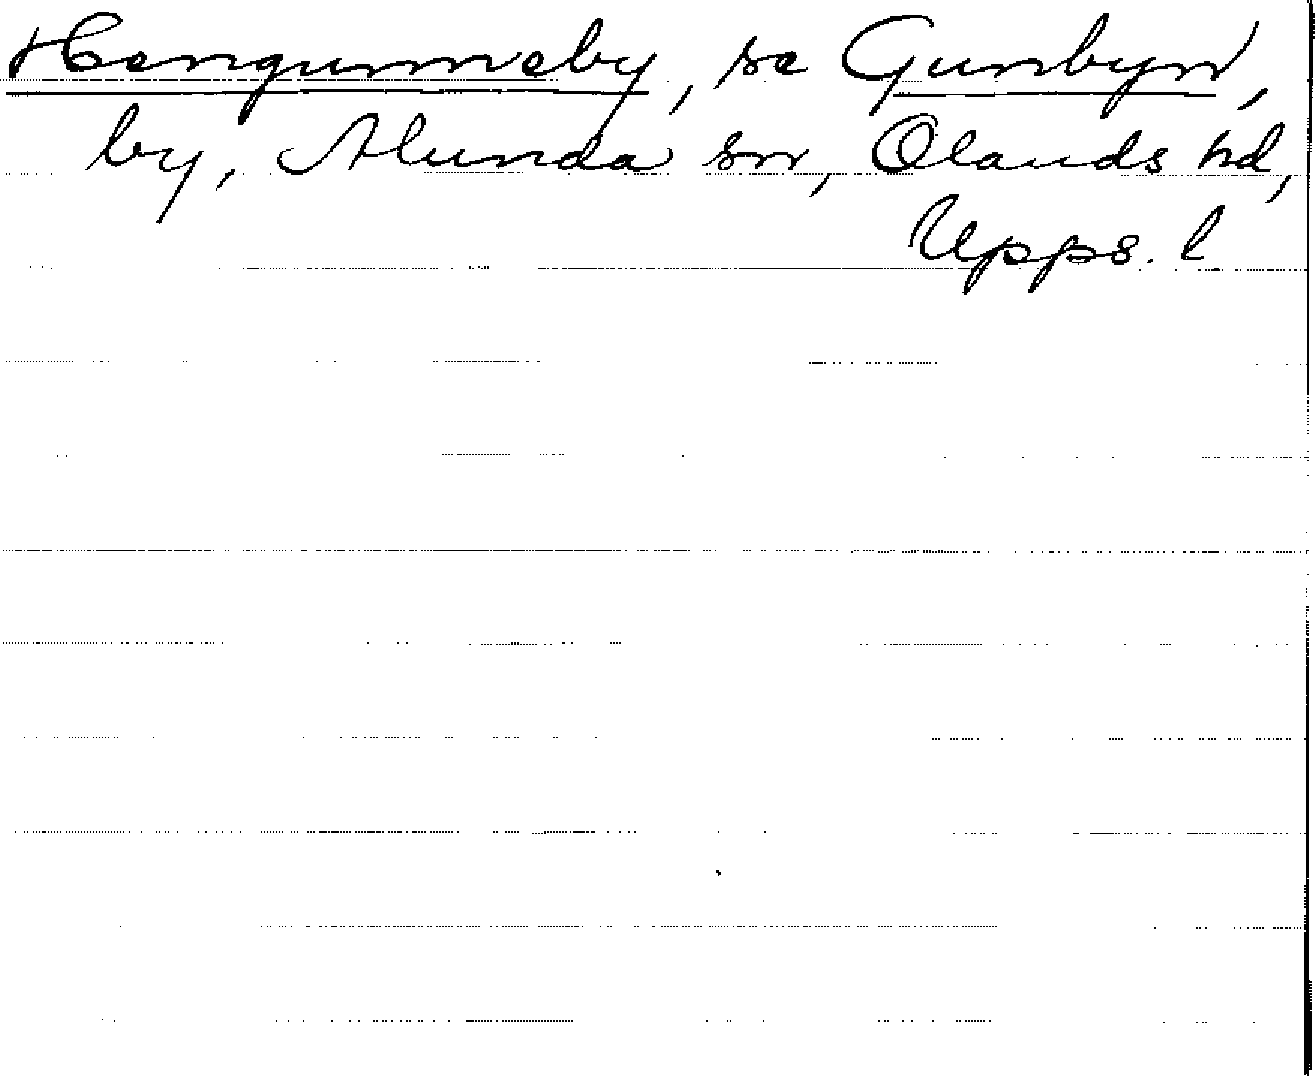 Hengunneby, se Gunbyn,
by, Alunda sn, Olands hd,
Upps. l